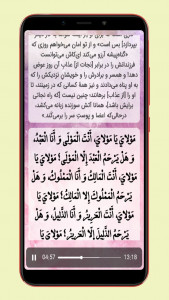 بپردازد] بس است» و از تو امان می‌خواهم روزی که
«گناه‌پیشه آرزو می‌کند ای‌کاش می‌توانست
فرزندانش را در برابر [نجات از] عذاب آن روز عوض
دهد! و همسر و برادرش را و خویشان نزدیکش را که
به او پناه می‌دادند و نیز همهٔ کسانی که در زمینند، تا
او را [از عذاب] برهانند؛ چنین نیست [که راه نجاتی
برایش باشد]، همانا آتش سوزنده زبانه می‌کشد،
درحالی‌که اعضا و پوستِ سر را برمی‌کند.»
مَوْلایَ یَا مَوْلایَ، أَنْتَ الْمَوْلَی وَ أَنَا الْعَبْدُ،
وَ هَلْ یَرْحَمُ الْعَبْدَ إِلّا الْمَوْلَی؛ مَوْلایَ یَا
مَوْلایَ، أَنْتَ الْمَالِکُ وَ أَنَا الْمَمْلُوکُ وَ هَلْ
یَرْحَمُ الْمَمْلُوکَ إِلّا الْمَالِکُ؛ مَوْلایَ یَا
مَوْلایَ، أَنْتَ الْعَزِیزُ وَ أَنَا الذَّلِیلُ، وَ هَلْ
یَرْحَمُ الذَّلِیلَ إِلَّا الْعَزِیزُ؛ مَوْلایَ یَا
04:57 13:18